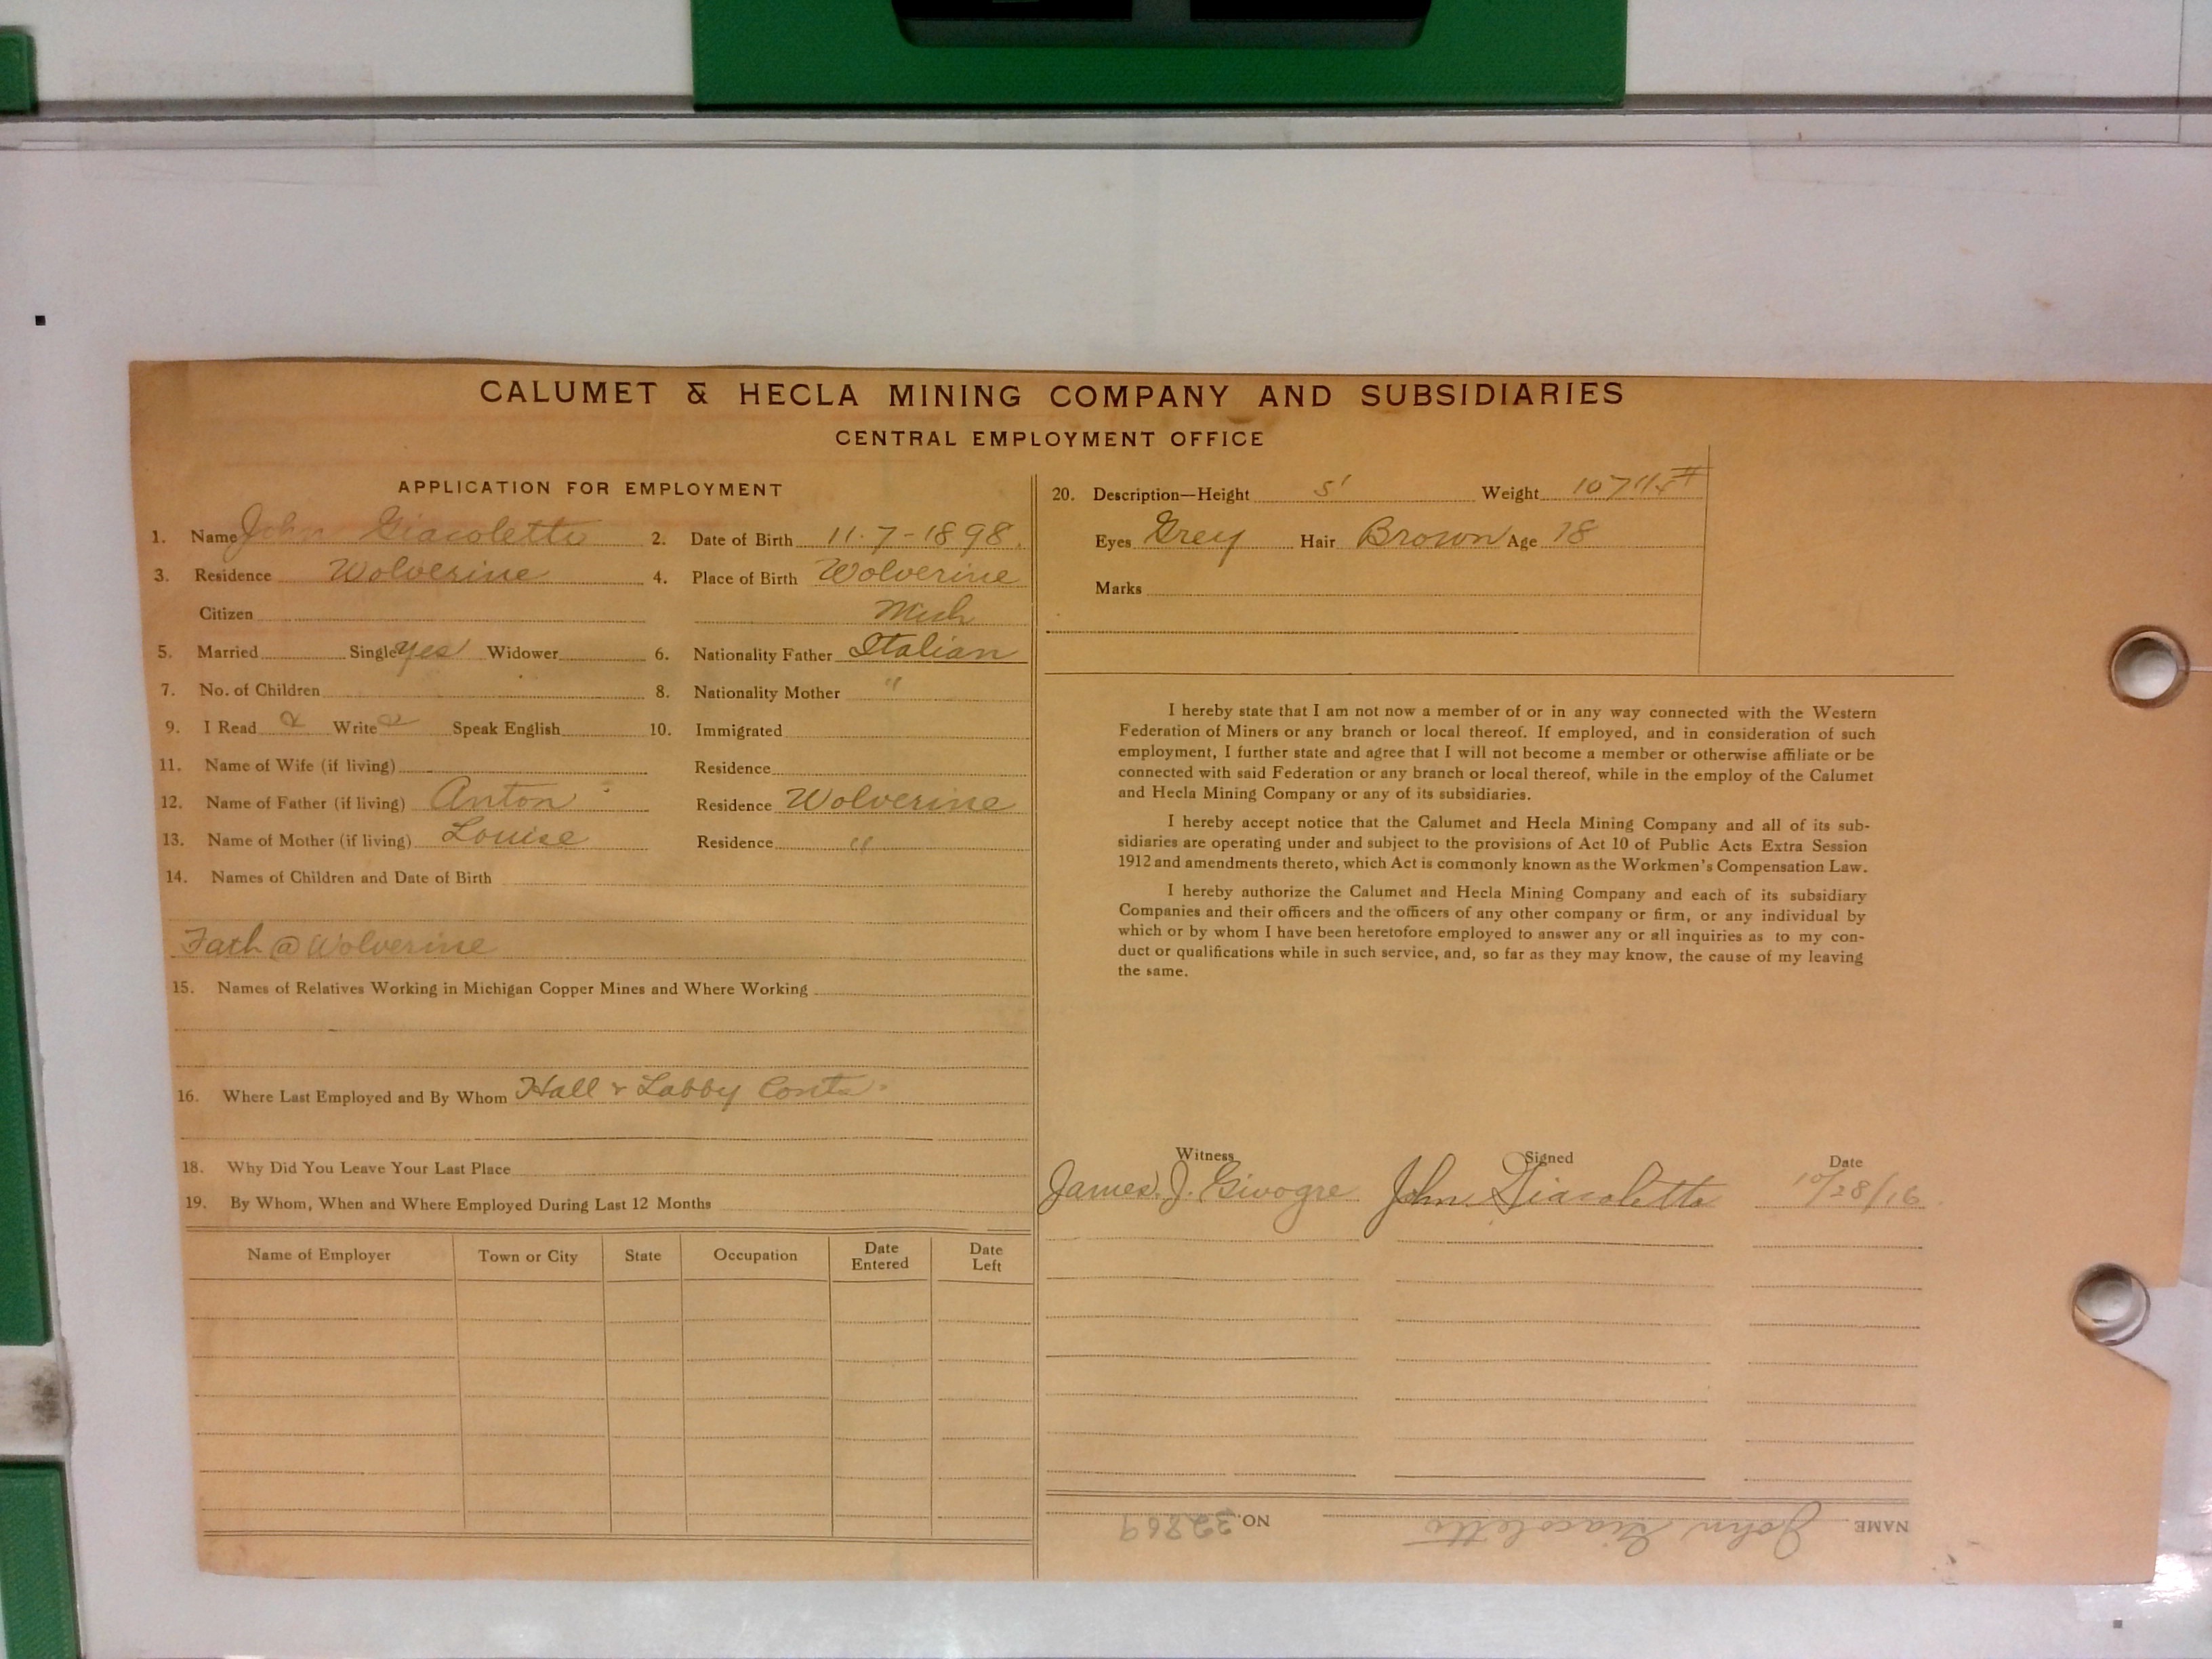 CALUMET & HECLA MINING COMPANY AND SUBSIDIARIES
CENTRAL EMPLOYMENT OFFICE
APPLICATION FOR EMPLOYMENT
1. Name John Giacoletto 2. Date of Birth 11-7-1898.
3. Residence Wolverine 4. Place of Birth Wolverine
Citizen Mich
5. Married Single yes Widower 6. Nationality Father Italian
7. No. of Children 8. Nationality Mother "
9. I Read Write Speak English 10. Immigrated
11. Name of Wife (if living) Residence
12. Name of Father (if living) Anton Residence Wolverine
13. Name of Mother (if living) Louise Residence "
14. Names of Children and Date of Birth
Fath @ Wolverine
15. Names of Relatives Working in Michigan Copper Mines and Where Working
16. Where Last Employed and By Whom Hall & Labby
18. Why Did You Leave Your Last Place
19. By Whom, When and Where Employed During Last 12 Months
Name of Employer Town or City State Occupation Date Entered Date Left
20. Description—Height 5' Weight
Eyes Grey Hair Brown Age 18
Marks
I hereby state that I am not now a member of or in any way connected with the Western
Federation of Miners or any branch or local thereof. If employed, and in consideration of such
employment, I further state and agree that I will not become a member or otherwise affiliate or be
connected with said Federation or any branch or local thereof, while in the employ of the Calumet
and Hecla Mining Company or any of its subsidiaries.
I hereby accept notice that the Calumet and Hecla Mining Company and all of its sub-
sidiaries are operating under and subject to the provisions of Act 10 of Public Acts Extra Session
1912 and amendments thereto, which Act is commonly known as the Workmen's Compensation Law.
I hereby authorize the Calumet and Hecla Mining Company and each of its subsidiary
Companies and their officers and the officers of any other company or firm, or any individual by
which or by whom I have been heretofore employed to answer any or all inquiries as to my con-
duct or qualifications while in such service, and, so far as they may know, the cause of my leaving
the same.
Witness Signed Date
James J. John Giacoletto 10/28/16
NAME John Giacoletto NO. 32869